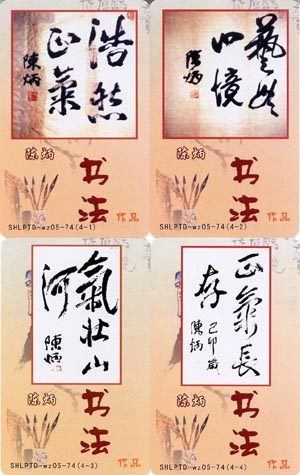 浩然
正氣
陳炳
陈炳
书法
作品
SHLPTD-wz05-74(4-1)
藝無
止境
陳炳
陈炳
书法
作品
SHLPTD-wz05-74(4-2)
氣壯山
河
陳炳
陈炳
书法
作品
SHLPTD-wz05-74(4-3)
正氣長
存
己卯歲
陳炳
陈炳
书法
作品
SHLPTD-wz05-74(4-4)